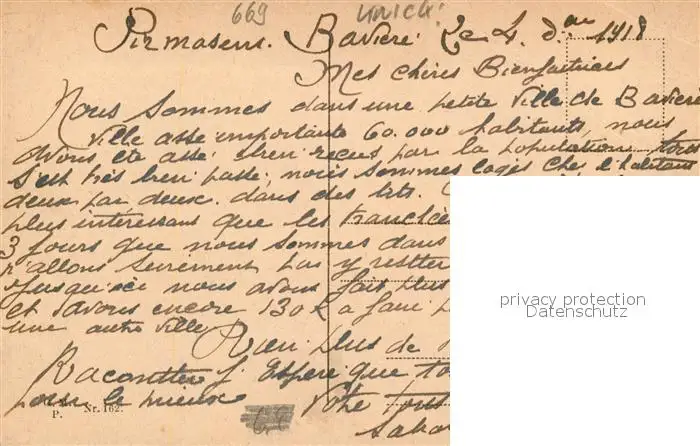 669 unich
Pirmasens. Baviere Le 4 Dbre 1918
Mes chères Bienfaitrices
Nous sommes dans une petite ville de Baviere
ville assé importante 60.000 habitants, nous
avons été assé bien reçus par la population tous
s'est très bien passé, nous sommes logés chez l'habitant
deux par deux. dans des lits.
plus intéressant que les tranchées
3 jours que nous sommes dans
n'allons surement pas y restter
jusqu'ici nous avons fait plus
et davons encore 130 k a faire p
une autre ville
Rien plus de
Racontter j'Espere que to
pour le mieux Votre tous
P. Nr. 162.
privacy protection
Datenschutz